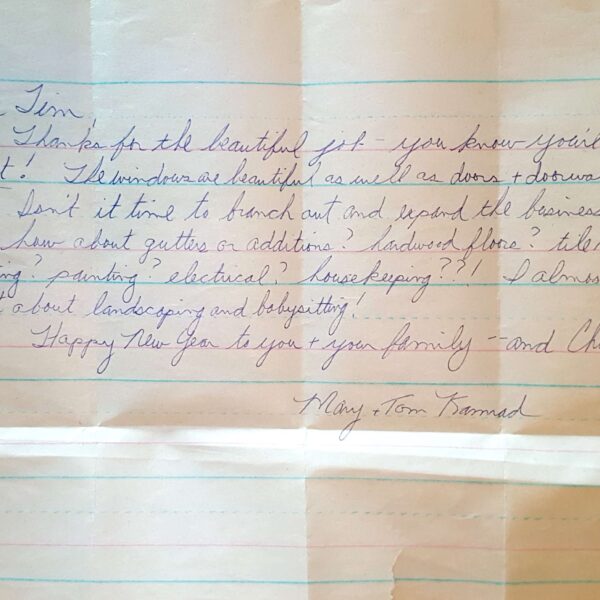 Tim,
Thanks for the beautiful job - you know you're
t! The windows are beautiful as well as doors + doorwa
Isn't it time to branch out and expand the business
how about gutters or additions? hardwood floors? tile
ing? painting? electrical? housekeeping??! I almos
t about landscaping and babysitting!
Happy New Year to you + your family -- and Ch
Mary + Tom